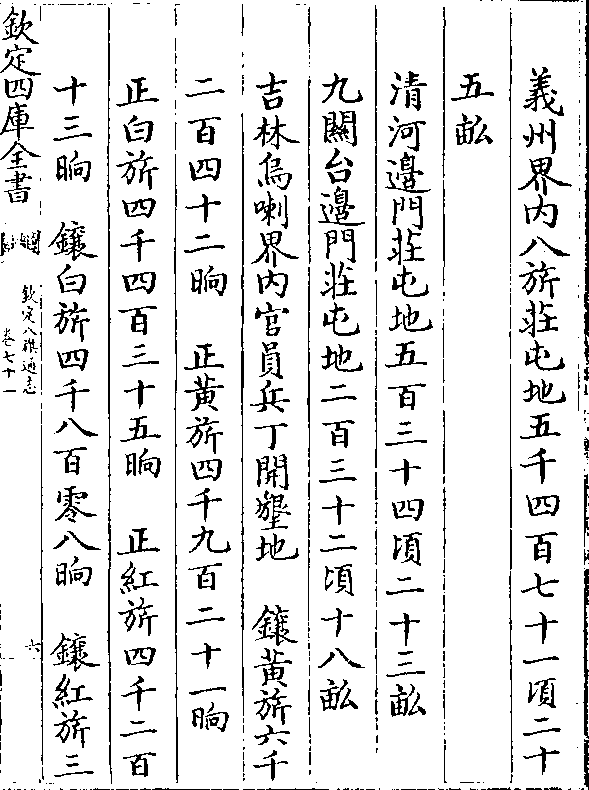 義州界内八旂莊屯地五千四百七十一頃二十
五畝
清河邊門莊屯地五百三十四頃二十三畝
九關台邊門莊屯地二百三十二頃十八畝
吉林烏喇界内官員兵丁開墾地　鑲黃旂六千
二百四十二晌　正黃旂四千九百二十一晌
正白旂四千四百三十五晌　正紅旂四千二百
十三晌　鑲白旂四千八百零八晌　鑲紅旂三
欽定四庫全書
欽定八旗通志
卷七十一
六